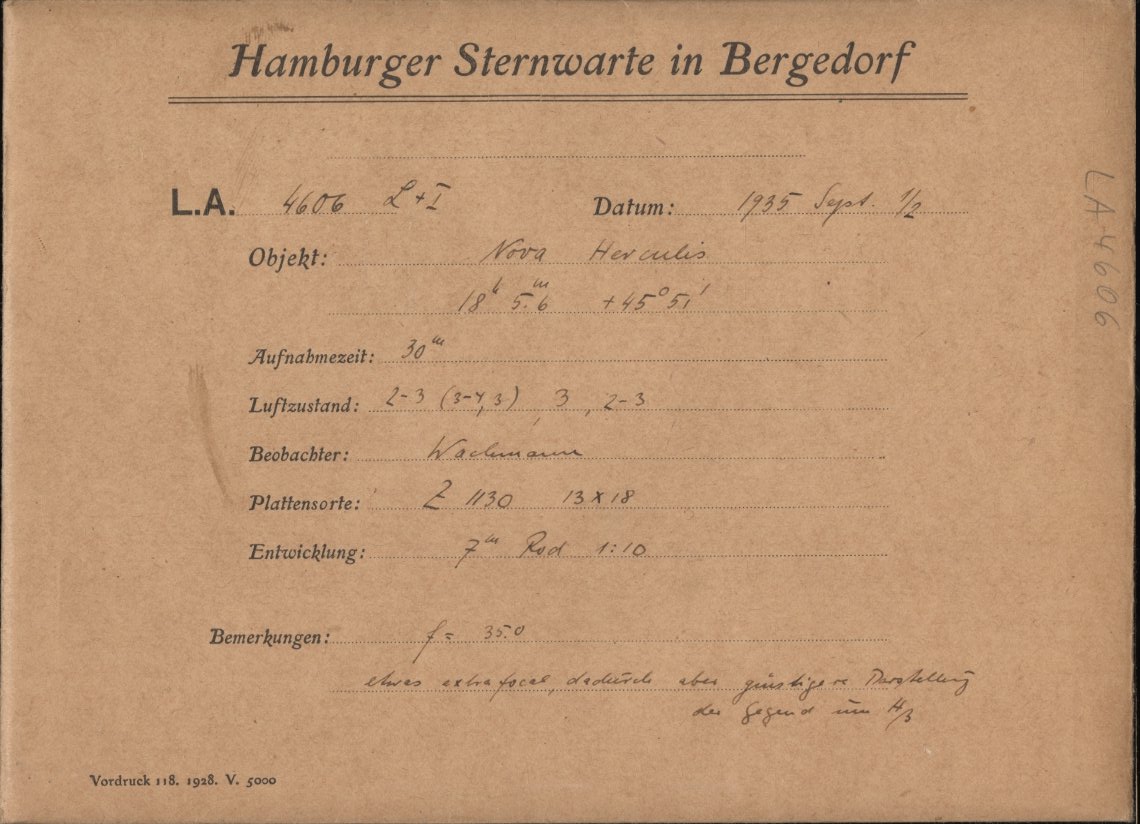 Hamburger Sternwarte in Bergedorf
L.A. 4606 L+I Datum: 1935 Sept. 1/2
Objekt: Nova Herculis
18h 5.m6 +45° 51'
Aufnahmezeit: 30m
Luftzustand: 2-3 (3-4, 3) 3, 2-3
Beobachter: Wachmann
Plattensorte: Z 1130 13×18
Entwicklung: 7m Rod 1:10
Bemerkungen: f = 35.0
etwas extrafocal, dadurch aber günstigere Darstellung
der Gegend um Hβ
Vordruck 118. 1928. V. 5000
LA 4606